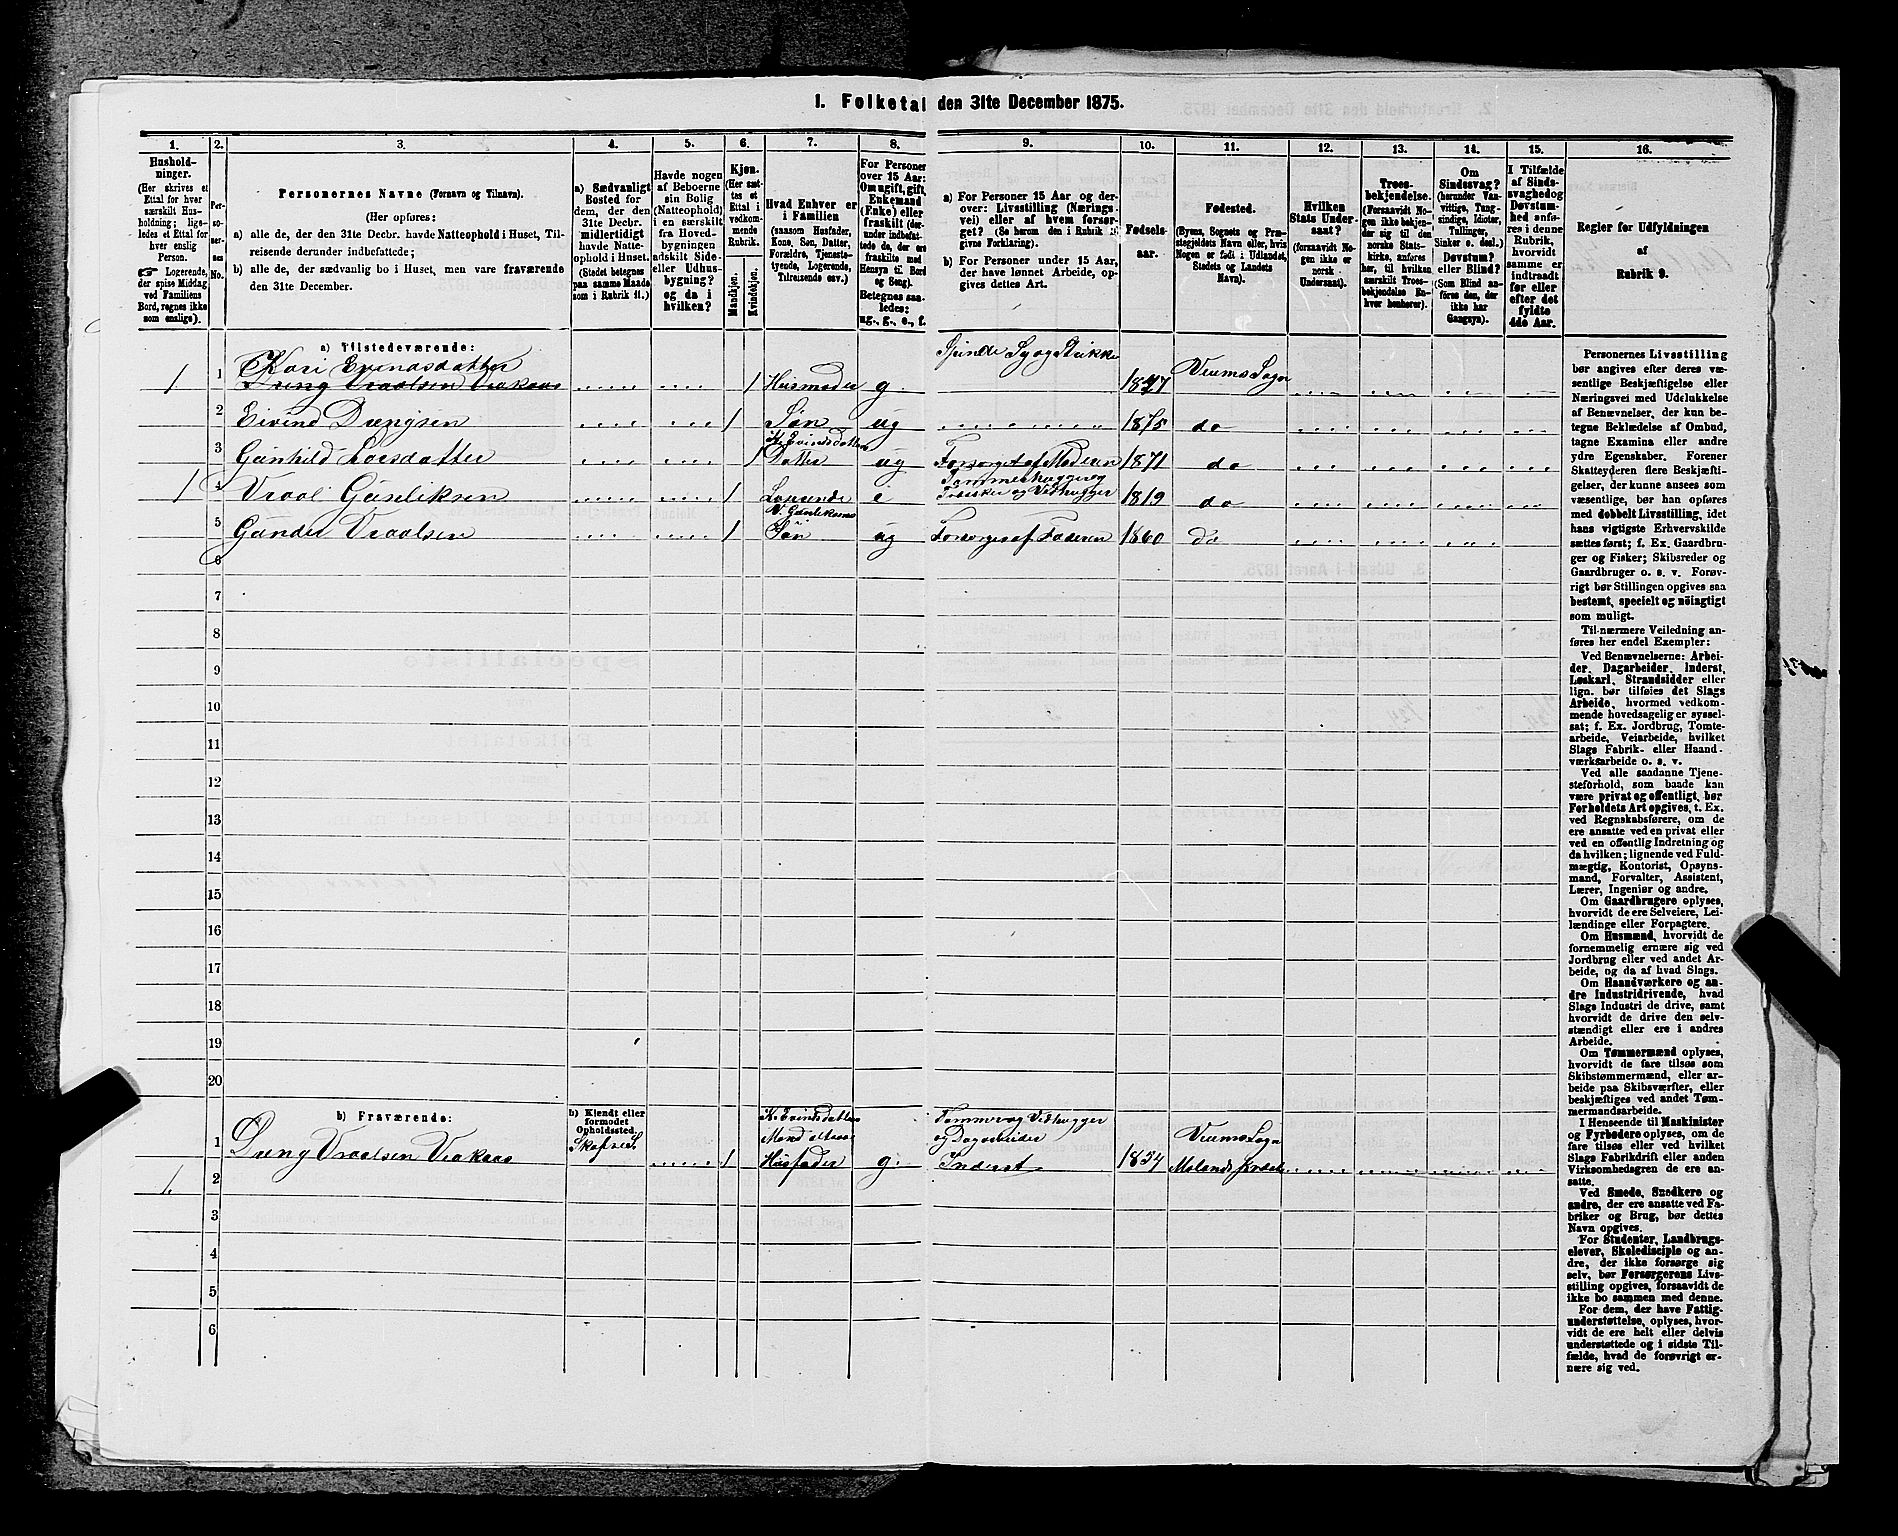 1. Folketal den 31te December 1875.
1.
Hushold-
ninger.
(Her skrives et
Ettal for hver
særskilt Hus-
holdning; lige-
ledes et Ettal for
hver enslig
Person.
☞ Logerende,
der spise Middag
ved Familiens
Bord, regnes ikke
som enslige).
2.
Per-
so-
ner-
nes
No.
3.
Personernes Navne (Fornavn og Tilnavn).
(Her opføres:
a) alle de, der den 31te Decbr. havde Natteophold i Huset, Til-
reisende derunder indbefattede;
b) alle de, der sædvanlig bo i Huset, men vare fraværende
den 31te December.
4.
a) Sædvanligt
Bosted for
dem, der den
31te Decbr.
midlertidigt
havde Natte-
ophold i Huset.
(Stedet betegnes
paa samme Maade
som i Rubrik 11.)
5.
Havde nogen
af Beboerne
sin Bolig
(Natteophold)
i en særskilt
fra Hoved-
bygningen
adskilt Side-
eller Udhus-
bygning?
og da i
hvilken?
6.
Kjøn.
(Her sæt-
tes et
Ettal i
vedkom-
mende
Rubrik.
Mandkjøn.
Kvindekjøn.
7.
Hvad Enhver er
i Familien
(saasom Husfader,
Kone, Søn, Datter,
Forældre, Tjeneste-
tyende, Logerende,
Tilreisende osv.)
8.
For Personer
over 15 Aar:
Om ugift, gift,
Enkemand
(Enke) eller
fraskilt (der-
under indbefat-
tede de, der ere
fraskilte med
Hensyn til Bord
og Seng).
Betegnes saa-
ledes:
ug., g., e., f.
9.
a) For Personer 15 Aar og der-
over: Livsstilling (Nærings-
vei) eller af hvem forsør-
get? (Se herom den i Rubrik 16
givne Forklaring).
b) For Personer under 15 Aar,
der have lønnet Arbeide, op-
gives dettes Art.
10.
Fødsels-
aar.
11.
Fødested.
(Byens, Sognets og Præ-
stegjeldets Navn eller, hvis
Nogen er født i Udlandet,
Stedets og Landets
Navn).
12.
Hvilken
Stats Under-
saat?
(forsaavidt No-
gen ikke er
norsk
Undersaat).
13.
Troes-
bekjendelse.
(Forsaavidt No-
gen ikke bekjen-
der sig til den
norske Stats-
kirke, anføres
her, til hvilken
særskilt Troes-
bekjendelse En-
hver henhører).
14.
Om
Sindssvag?
(herunder Van-
vittige, Tung-
sindige, Idioter,
Tullinger,
Sinker o. desl.)
Døvstum?
eller Blind?
(Som Blind an-
føres den, der
ikke har
Gangsyn).
15.
I Tilfælde
af Sinds-
svaghed og
Døvstum-
hed anfø-
res i denne
Rubrik,
hvorvidt
samme er
indtraadt
før eller
efter det
fyldte
4de Aar.
16.
Regler for Udfyldningen
af
Rubrik 9.
a) Tilstedeværende:
1 1 Kari Evindsdatter
Dreng Vraalsen Veakaas 1 Husmoder g. Spinde Sy og Strikke 1847 Veums Sogn
2 Eivind Drengsen 1 Søn ug 1875 do
3 Gunhild Larsdatter 1 K. Evindsdatters
Datter ug Forsørget af Moderen 1871 do
1 4 Vraal Gunliksen 1 Losjerende e Tømmerhugger og
Fløisker og Vedhugger 1819 do
5 Gunder Vraalsen 1 V. Gunliksens
Søn ug Forsørges af Faderen 1860 do
6
7
8
9
10
11
12
13
14
15
16
17
18
19
20
b) Fraværende:
b) Kjendt eller
formodet
Opholdssted.
1 Dreng Vraalsen Veakaas Skafse S. 1 K. Evindsdatters
Mand altsaa
Husfader g. Tømmer og Vedhugger
og Dagarbeider
Inderst 1854 Veums Sogn
Molands Præst.
1. 2
3
4
5
6
Personernes Livsstilling
bør angives efter deres væ-
sentlige Beskjæftigelse eller
Næringsvei med Udelukkelse
af Benævnelser, der kun be-
tegne Beklædelse af Ombud,
tagne Examina eller andre
ydre Egenskaber. Forener
Skatteyderen flere Beskjæfti-
gelser, der kunne ansees som
væsentlige, bør han opføres
med dobbelt Livsstilling, idet
hans vigtigste Erhvervskilde
sættes først; f. Ex. Gaardbru-
ger og Fisker; Skibsreder og
Gaardbruger o. s. v. Forøv-
rigt bør Stillingen opgives saa
bestemt, specielt og nöiagtigt
som muligt.
Til nærmere Veiledning an-
føres her endel Exempler:
Ved Benævnelserne: Arbei-
der, Dagarbeider, Inderst,
Løskarl, Strandsidder eller
lign. bør tilføies det Slags
Arbeide, hvormed vedkom-
mende hovedsagelig er syssel-
sat; f. Ex. Jordbrug, Tomte-
arbeide, Veiarbeide, hvilket
Slags Fabrik- eller Haand-
værksarbeide o. s. v.
Ved alle saadanne Tjene-
steforhold, som baade kan
være privat og offentligt, bør
Forholdets Art opgives, t. Ex.
ved Regnskabsførere, om de
ere ansatte ved en privat eller
ved en offentlig Indretning og
da hvilken; lignende ved Fuld-
mægtig, Kontorist, Opsyns-
mand, Forvalter, Assistent,
Lærer, Ingeniør og andre.
Om Gaardbrugere oplyses,
hvorvidt de ere Selveiere, Lei-
lændinge eller Forpagtere.
Om Husmænd, hvorvidt de
fornemmelig ernære sig ved
Jordbrug eller ved andet Ar-
beide, og da af hvad Slags.
Om Haandværkere og an-
dre Industridrivende, hvad
Slags Industri de drive, samt
hvorvidt de drive den selv-
stændigt eller ere i andres
Arbeide.
Om Tømmermænd oplyses,
hvorvidt de fare tilsøs som
Skibstømmermænd, eller ar-
beide paa Skibsværfter, eller
beskjæftiges ved andet Tøm-
mermandsarbeide.
I Henseende til Maskinister
og Fyrbødere oplyses, om de
fare tilsøs eller ved hvilket
Slags Fabrikdrift eller anden
Virksomhedsgren de ere an-
satte.
Ved Smede, Snedkere og
andre, der ere ansatte ved Fa-
briker og Brug, bør dettes
Navn opgives.
For Studenter, Landbrugs-
elever, Skoledisciple og an-
dre, der ikke forsørge sig
selv, bør Forsørgerens Livs-
stilling opgives, forsaavidt de
ikke bo sammen med denne.
For dem, der have Fattig-
understøttelse, oplyses, hvor-
vidt de ere helt eller delvis
understøttede og i sidste Til-
fælde, hvad de forøvrigt er-
nære sig ved.